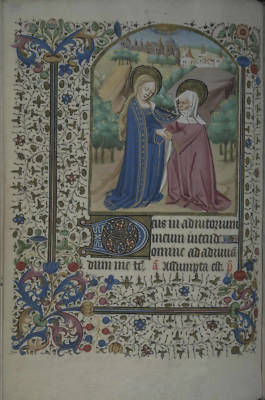 Deus in adiutorium
meum intende
omine ad adiuuan
dum me fe. a Assumpta est. p